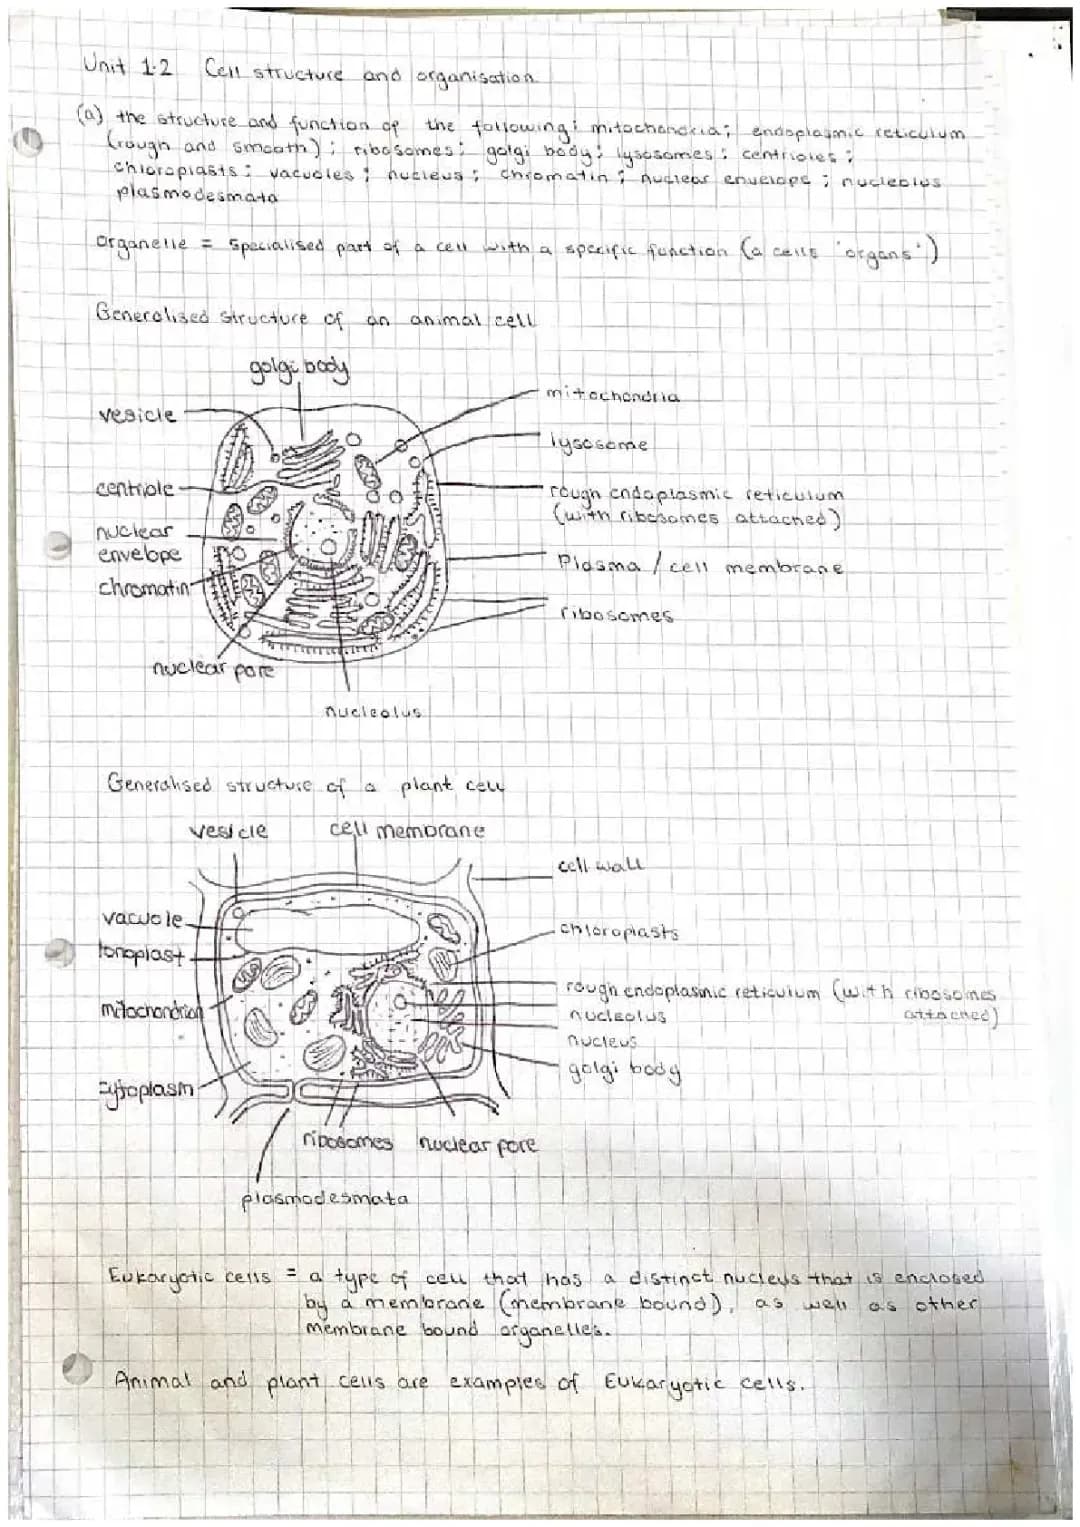 Unit 1.2 Cell structure and organisation
(a) the structure and function of the following: mitochondria; endoplasmic reticulum
(rough and smooth); ribosomes; golgi body; lysosomes; centrioles;
chloroplasts; vacuoles; nucleus; chromatin; nuclear envelope; nucleolus
plasmodesmata
Organelle = Specialised part of a cell with a specific function (a cells 'organs')
Generalised structure of an animal cell
golgi body
mitochondria
vesicle
lysosome
centriole
rough endoplasmic reticulum
(with ribosomes attached)
nuclear
envelope
Plasma / cell membrane
chromatin
ribosomes
nuclear pore
nucleolus
Generalised structure of a plant cell
vesicle
cell membrane
cell wall
vacuole
chloroplasts
tonoplast
rough endoplasmic reticulum (with ribosomes
attached)
mitochondrion
nucleolus
nucleus
golgi body
cytoplasm
ribosomes
nuclear pore
plasmodesmata
Eukaryotic cells = a type of cell that has a distinct nucleus that is enclosed
by a membrane (membrane bound), as well as other
membrane bound organelles.
Animal and plant cells are examples of Eukaryotic cells.